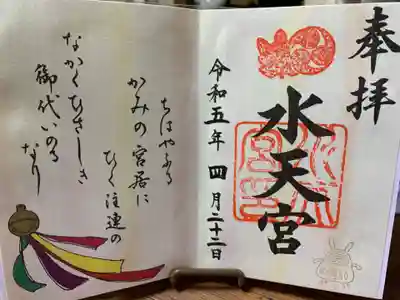 奉拝
水天宮
令和五年 四月二十二日
ちはやふる
かみの宮居に
ひく注連の
なかくひさしき
御代いのる
なり